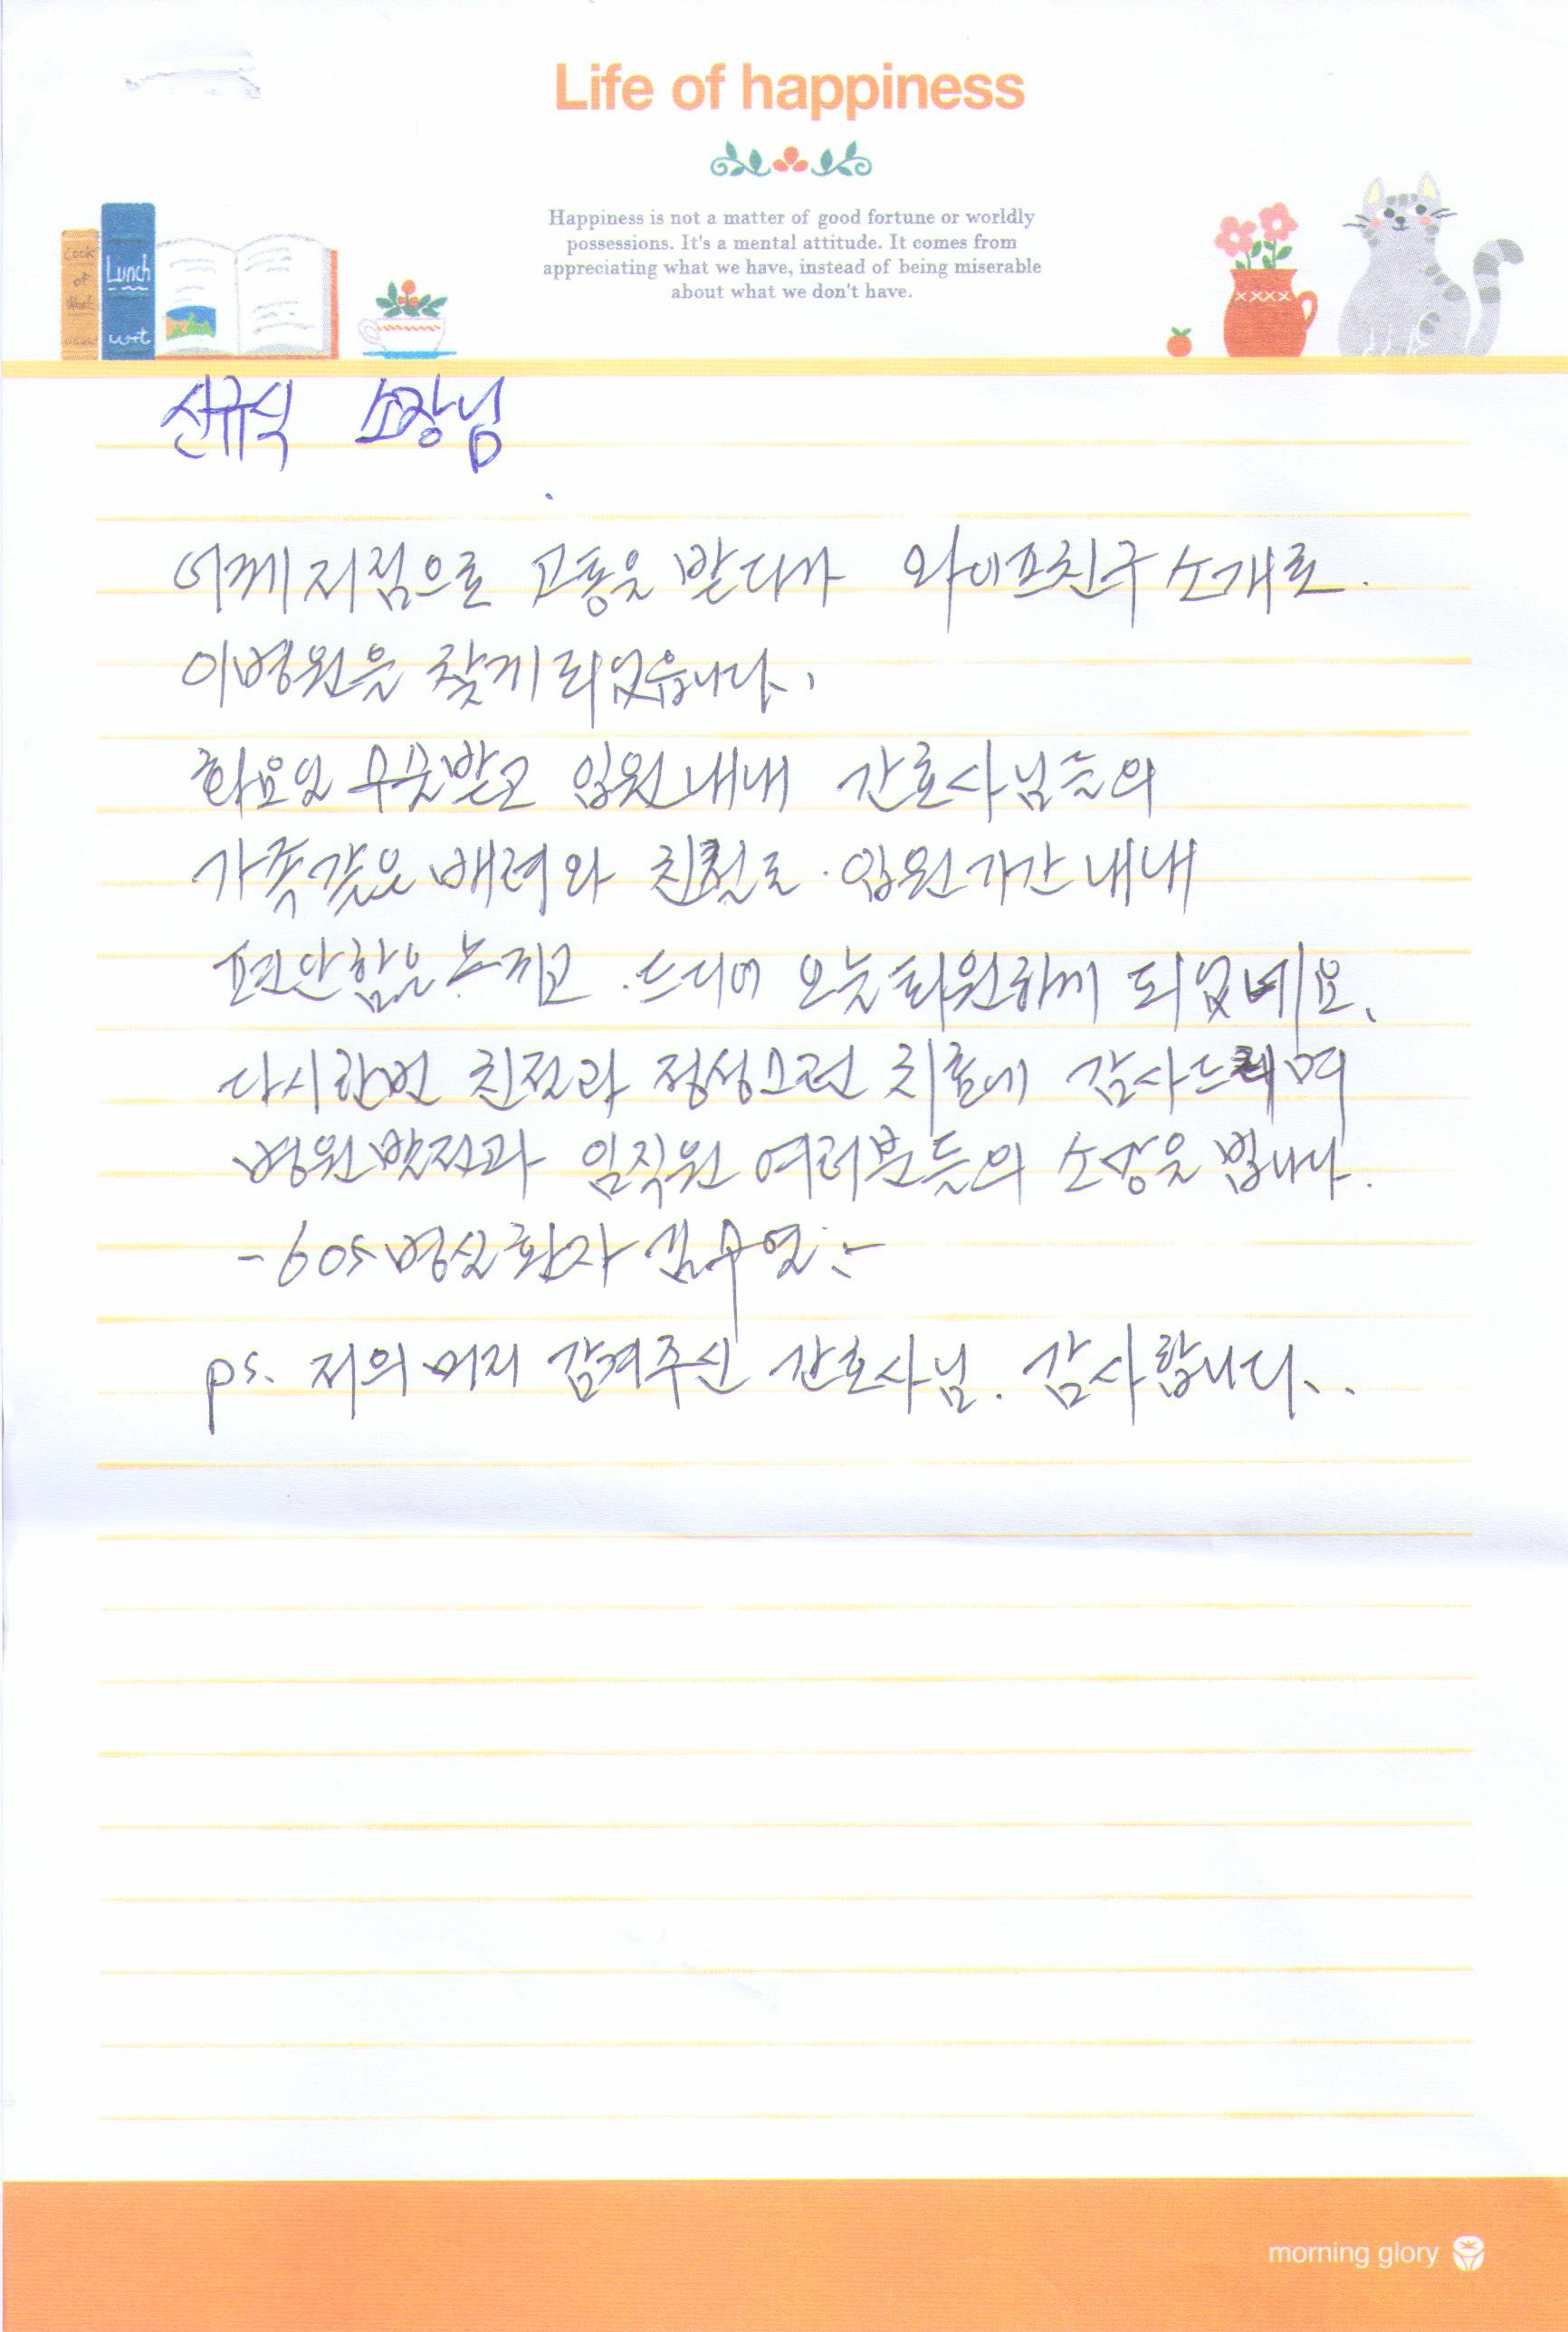 Life of happiness
Happiness is not a matter of good fortune or worldly
possessions. It's a mental attitude. It comes from
appreciating what we have, instead of being miserable
about what we don't have.
Cook
of
What
Lunch
신규식 소장님
어께지점으로 고통을 받다가 와이프친구 소개로.
이병원을 찾게 되었읍니다.
화요일 수술받고 입원내내 간호사님들의
가족같은 배려와 친절로. 입원기간내내
편안함을 느끼고. 드디어 오늘퇴원하게 되었네요.
다시한번 친절과 정성스런 치료에 감사드리며
병원발전과 임직원 여러분들의 소망을 빕니다.
-605병실환자
ps. 저의 머리 감겨주신 간호사님. 감사합니다..
morning glory